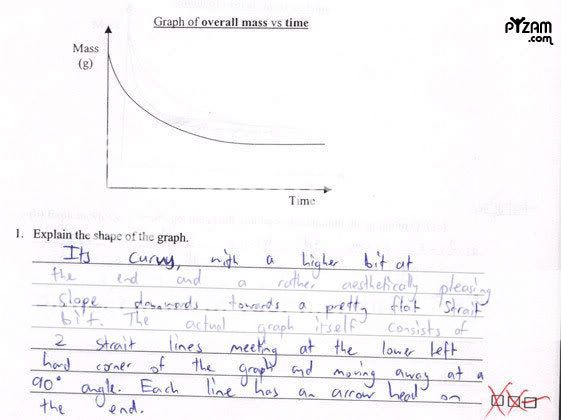 Graph of overall mass vs time
PYZAM
.com
Mass
(g)
Time
1. Explain the shape of the graph.
Its curvy, with a higher bit at
the end and a rather aesthetically pleasing
slope downwards towards a pretty flat strait
bit. The actual graph itself consists of
2 strait lines meeting at the lower left
hand corner of the graph and moving away at a
90° angle. Each line has an arrow head on
the end.